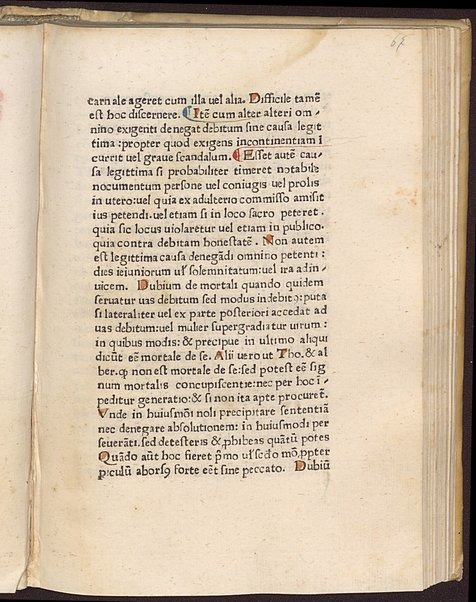 67
carnale ageret cum illa uel alia. Difficile tamē
est hoc discernere. ¶ Itē cum alter alteri om-
nino exigenti denegat debitum sine causa legit
tima: propter quod exigens incontinentiam ī
currit uel graue scandalum. ¶ Esset autē cau/
sa legittima si probabiliter timeret notabile
nocumentum persone uel coniugis uel prolis
in utero: uel quia ex adulterio commisso amisit
ius petendi. uel etiam si in loco sacro peteret.
quia sic locus uiolaretur uel etiam in publico.
quia contra debitam honestatē. Non autem
est legittima causa denegādi omnino petenti:
dies ieiuniorum uł solemnitatum: uel ira adin/
uicem. Dubium de mortali quando quidem
seruatur uas debitum sed modus indebitꝰ: puta
si lateraliter uel ex parte posteriori accedat ad
uas debitum: uel mulier supergradiatur uirum:
in quibus modis: & precipue in ultimo aliqui
dicūt eē mortale de se. Alii uero ut Tho. & al
ber. ꝙ non est mortale de se: sed potest eē sig
num mortalis concupiscentie: nec per hoc ī-
peditur generatio: & si non ita apte procuret̄.
Vnde in huiusmōi noli precipitare sententiā
nec denegare absolutionem: in huiusmodi per
seuerāti. sed detesteris & ꝓhibeas quātū potes
Quādo aūt hoc fieret p̄mo uł sc̄do mō. ꝓpter
piculū aborsꝯ forte eēt sine peccato. Dubiū